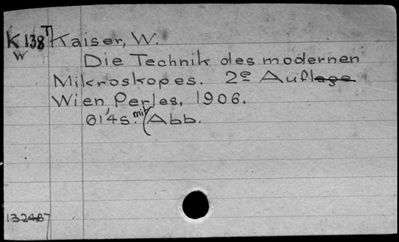 K138T Kaiser, W.
W Die Technik des modernen
Mikroskopes. 2e Auflage
Wien Perles, 1906.
81'4s. mit Abb.
132487